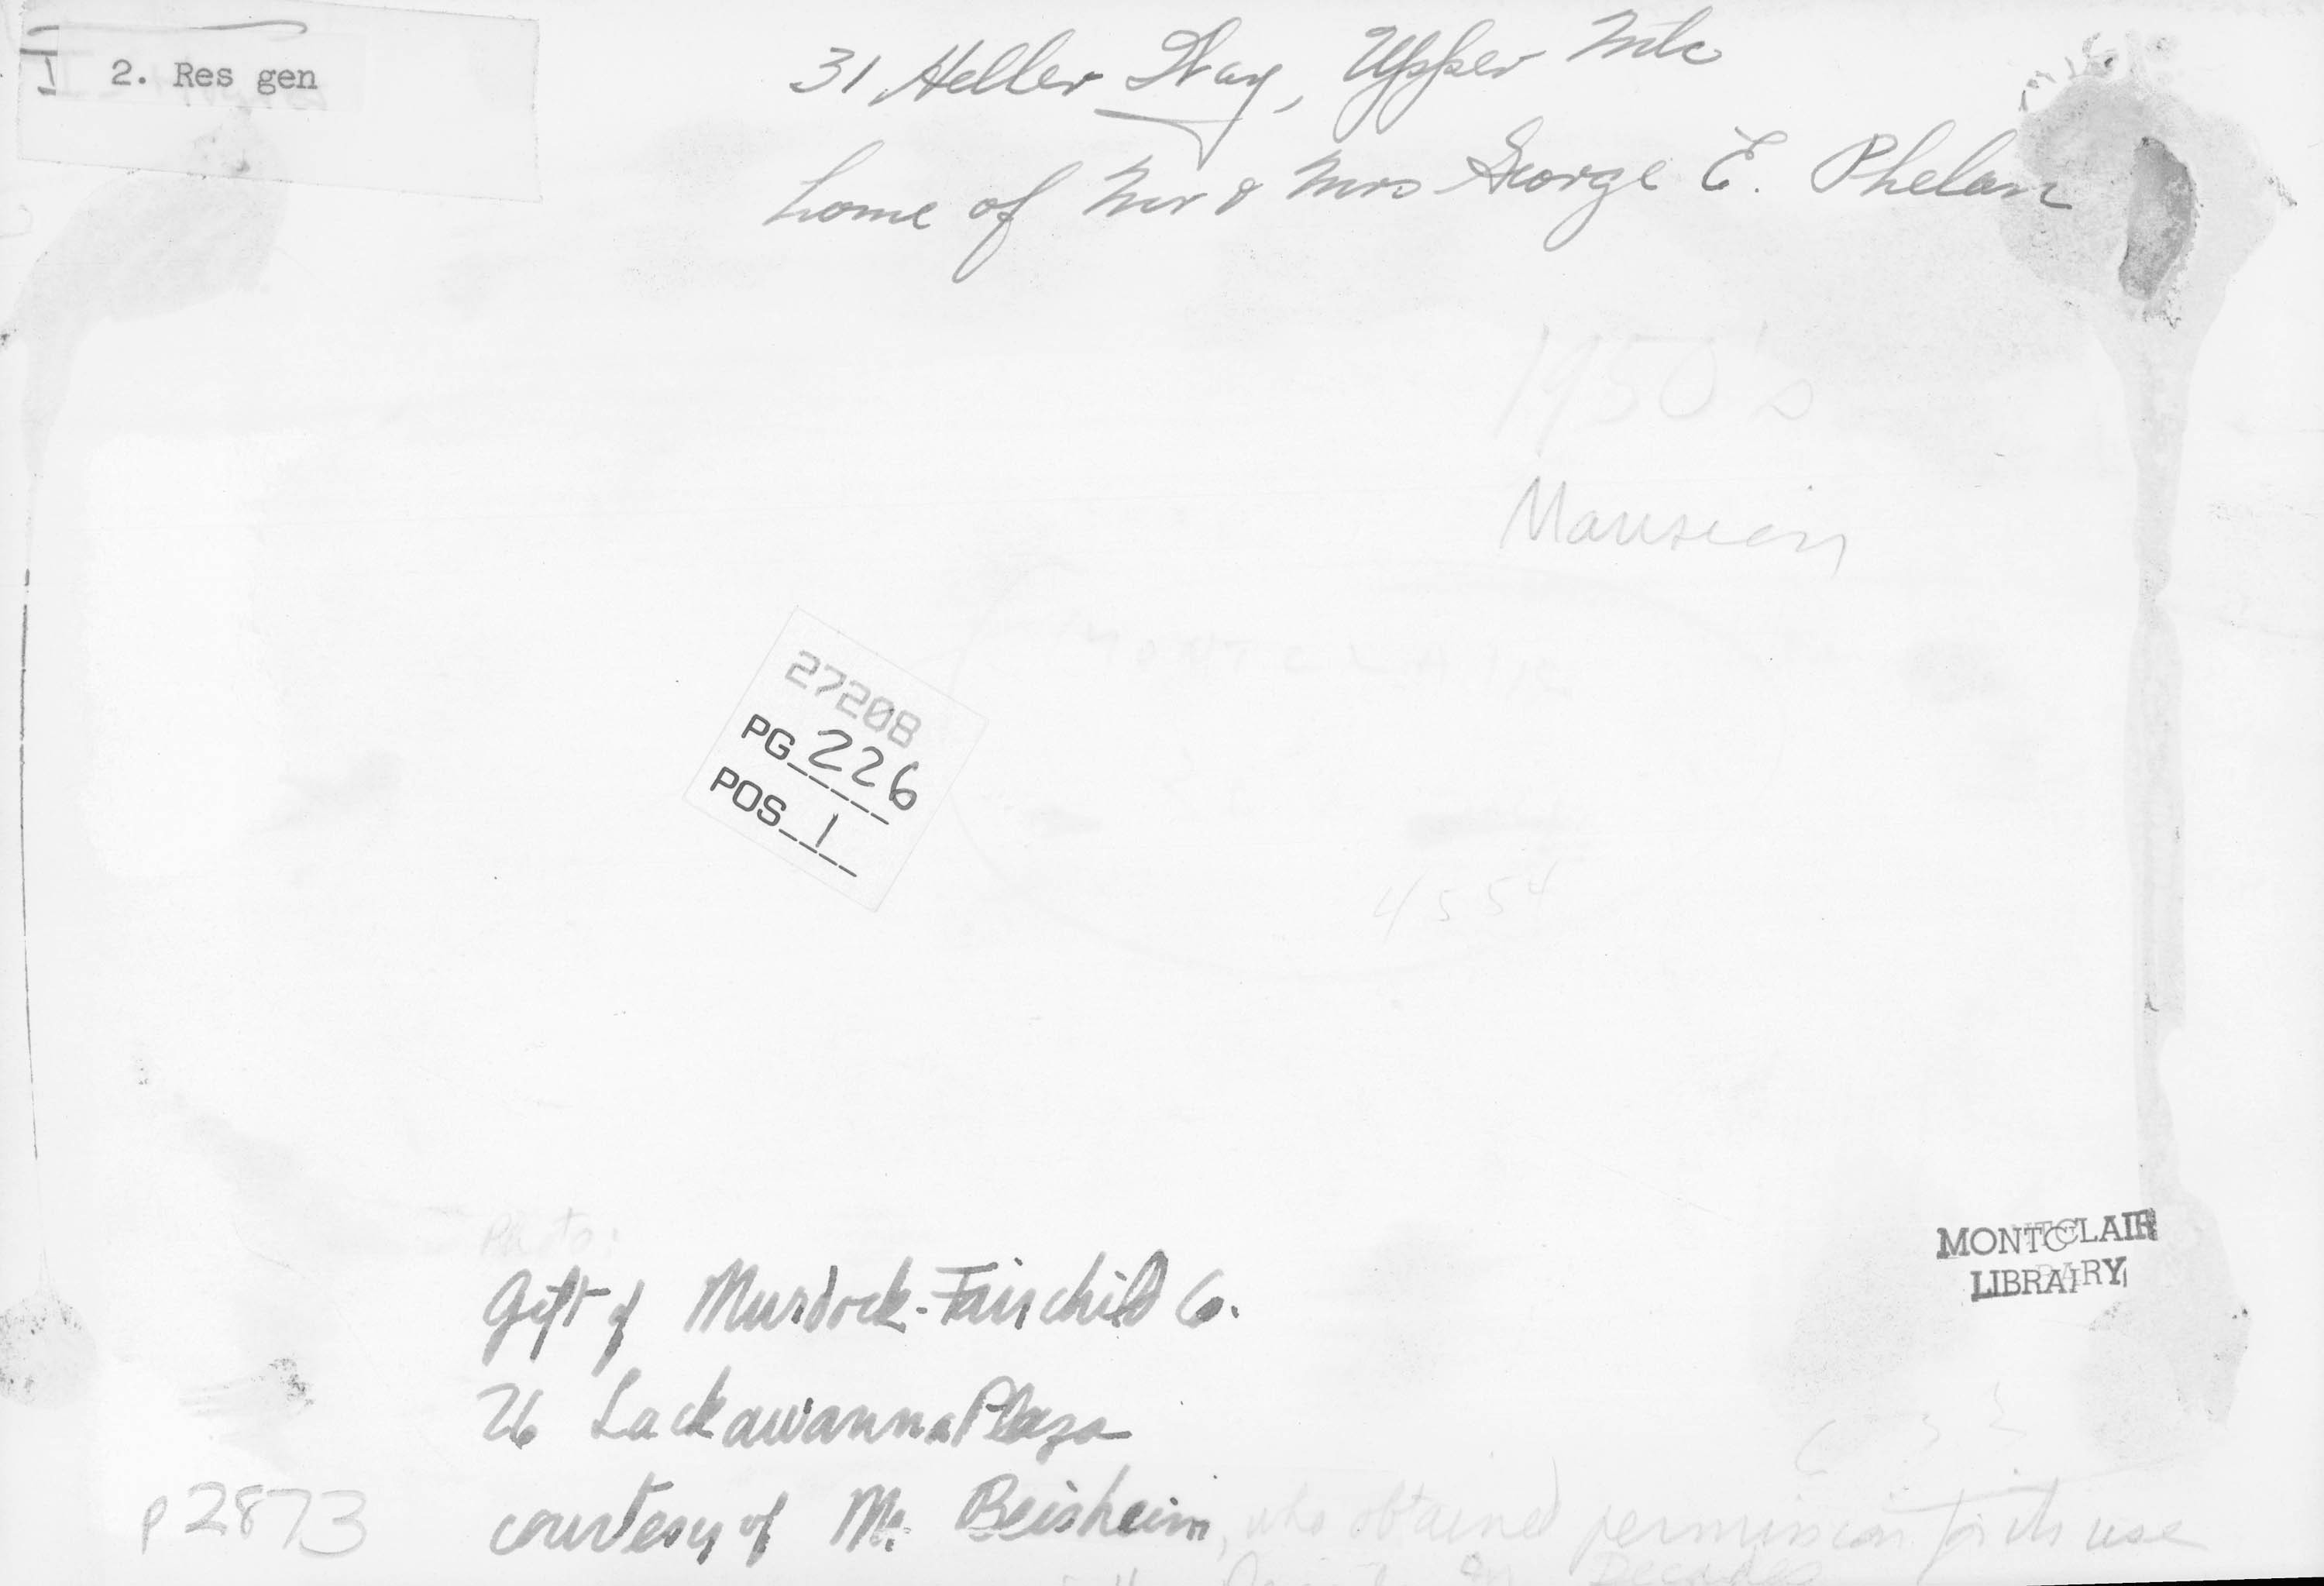 2. Res gen
31 Heller Way, Upper Mtc
home of Mr & Mrs George E. Phelan
1950's
Mansion
MONTCLAIR
27208
PG 226
POS 1
4554
MONTCLAIR
LIBRARY
Photo:
Gift of Murdock-Fairchild Co.
26 Lackawanna Plaza
courtesy of Mr. Beisheim, who obtained permission for its use
Decades
p2873